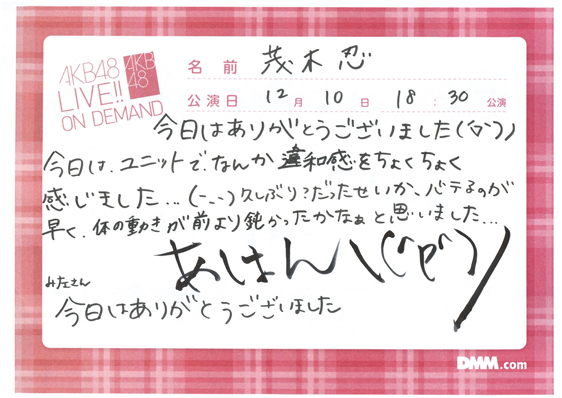 AKB48
LIVE!!
ON DEMAND
AKB
48
名前 茂木忍
公演日 12月10日 18:30公演
今日はありがとうございました(^o^)丿
今日は、ユニットで、なんか違和感をちょくちょく
感じました…(-、-)久しぶり?だったせいか、バテるのが
早く、体の動きが前より鈍かったかなぁと思いました…
あはん\(^p^)/
みなさん
今日はありがとうございました
DMM.com